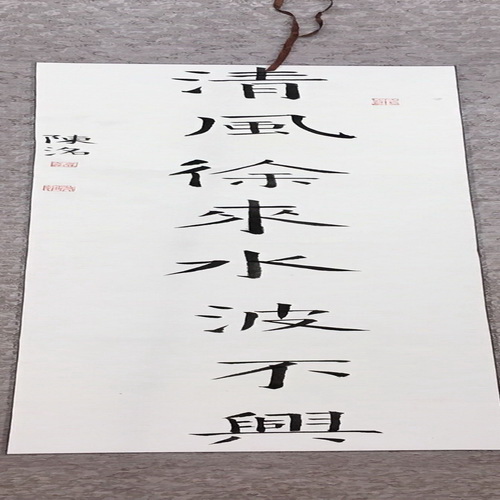 清風徐來水波不興
陳洛